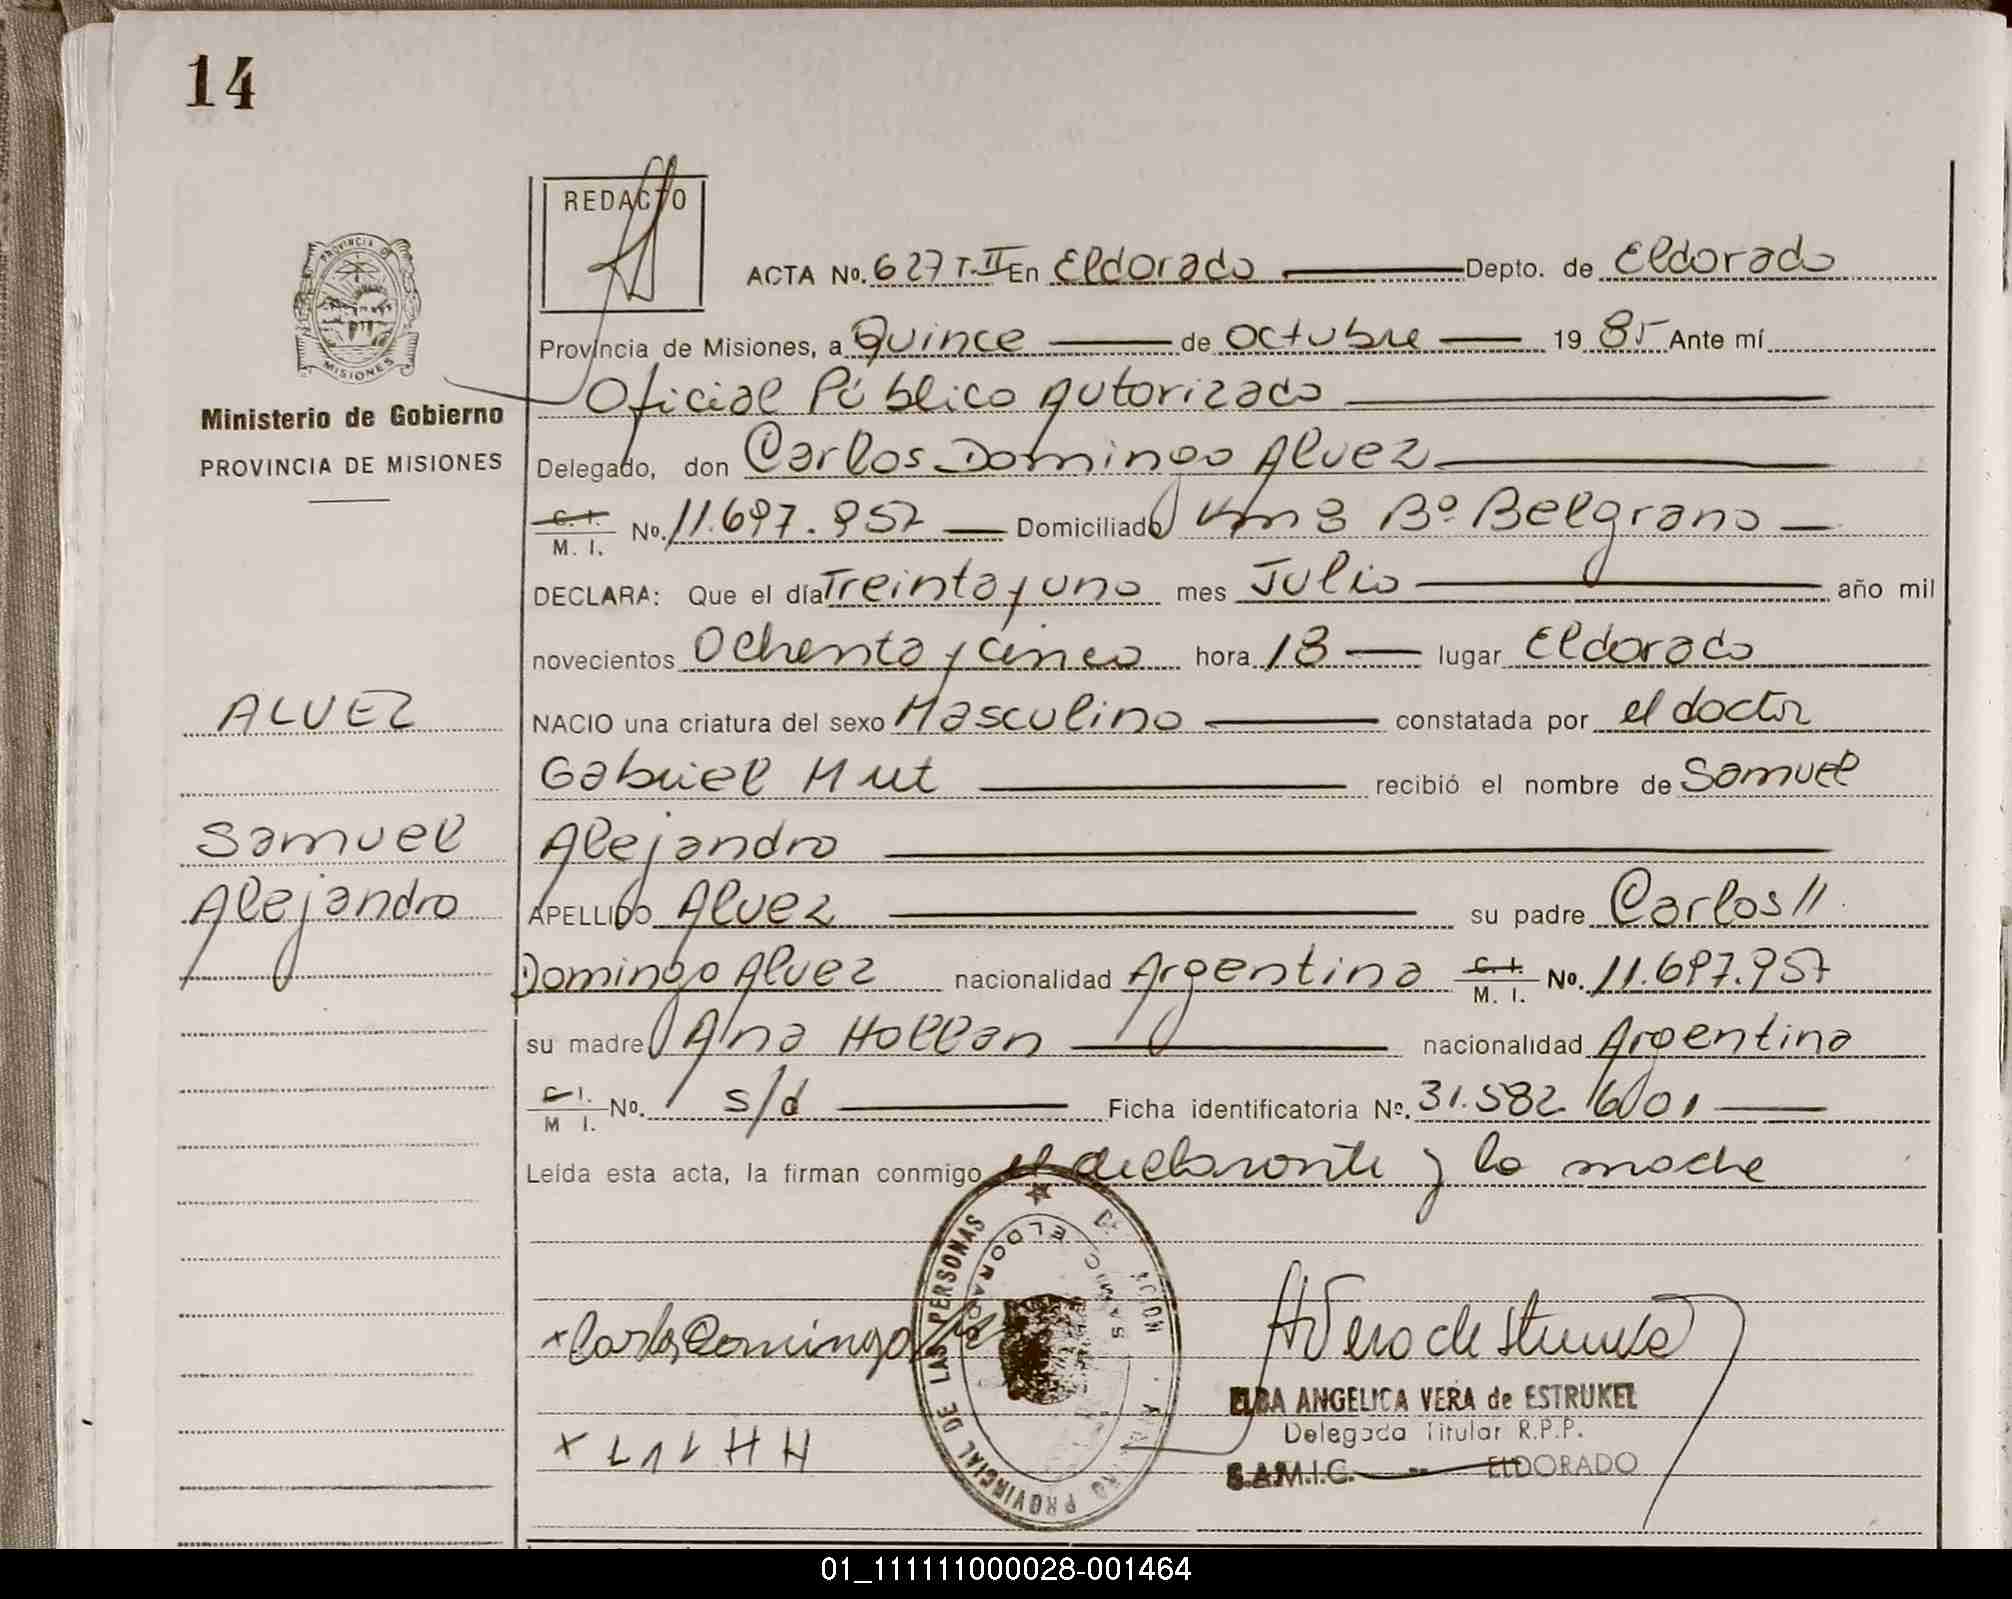 14
REDACTO
PROVINCIA DE
MISIONES
Ministerio de Gobierno
PROVINCIA DE MISIONES
ACTA No. 627 T.II En Eldorado Depto. de Eldorado
Provincia de Misiones, a Quince de Octubre 19 85 Ante mí
Oficial Público Autorizado
Delegado, don Carlos Domingo Alvez
C. I. M. I. No. 11.697.957 Domiciliado Km 8 Bº Belgrano
DECLARA: Que el día Treinta y uno mes Julio año mil
novecientos Ochenta y cinco hora 18 lugar Eldorado
ALVEZ
NACIO una criatura del sexo Masculino constatada por el doctor
Gabriel Hut recibió el nombre de Samuel
Samuel
Alejandro
Alejandro
APELLIDO Alvez su padre Carlos//
Domingo Alvez nacionalidad Argentina C. I. M. I. No. 11.697.957
su madre Ana Hollan nacionalidad Argentina
C. I. M. I. No. s/d Ficha identificatoria Nº. 31.582.601
Leída esta acta, la firman conmigo el declarante y la madre
x Carlos Domingo
ELBA ANGELICA VERA de ESTRUKEL
Delegada Titular R.P.P.
S.A.M.I.C. ELDORADO
PROVINCIAL DE LAS PERSONAS
SAMIC ELDORADO
01_111111000028-001464